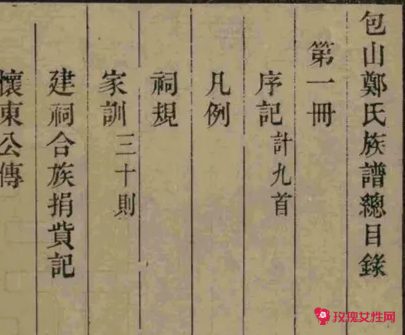 包山鄭氏族譜總目錄
第一冊
序記計九首
凡例
祠規
家訓三十則
建祠合族捐貲記
懷東公傳
玫瑰女性网